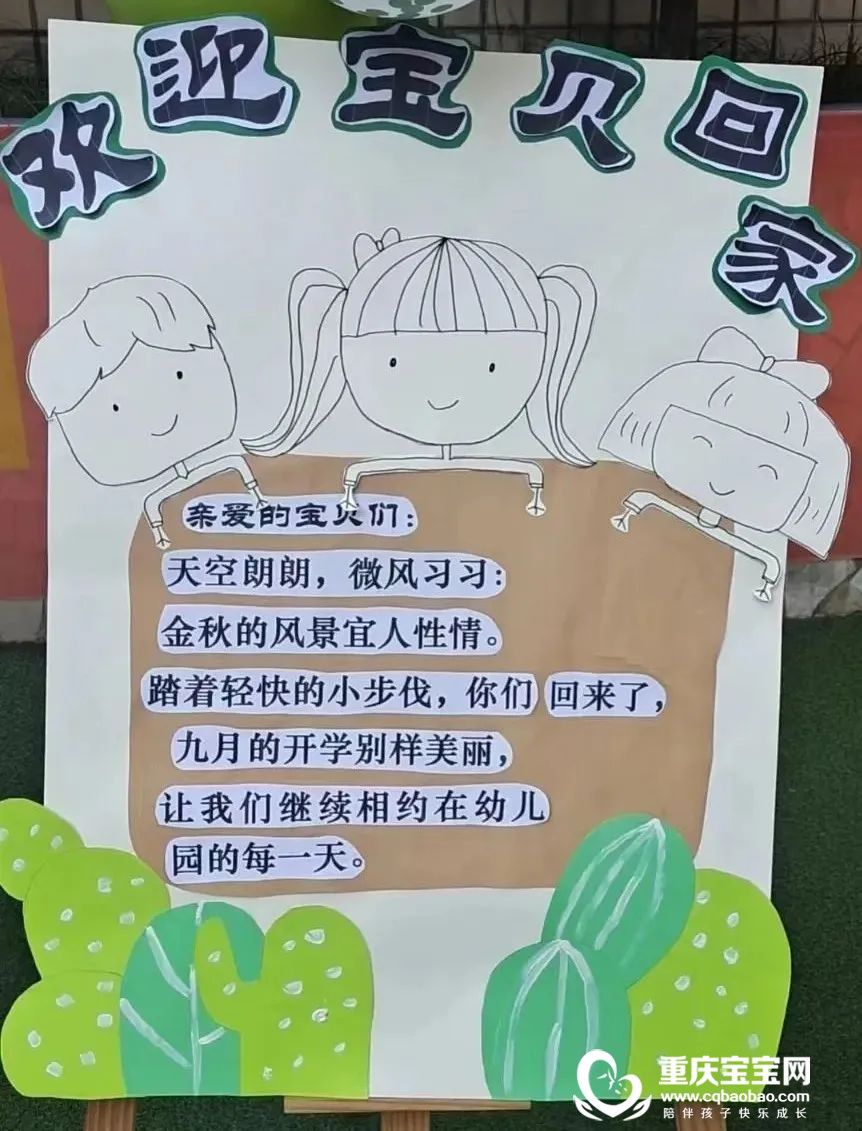 欢迎宝贝回家
亲爱的宝贝们:
天空朗朗，微风习习:
金秋的风景宜人性情。
踏着轻快的小步伐，你们回来了，
九月的开学别样美丽，
让我们继续相约在幼儿
园的每一天。
重庆宝宝网
www.cqbaobao.com
陪伴孩子快乐成长